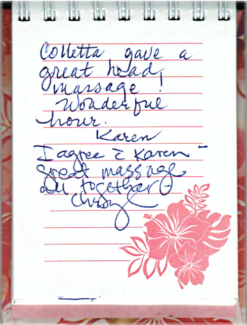 Colletta gave a
great head,
massage!
Wonderful
hour.
Karen
I agree c̄ Karen -
great massage
all together
Cheryl